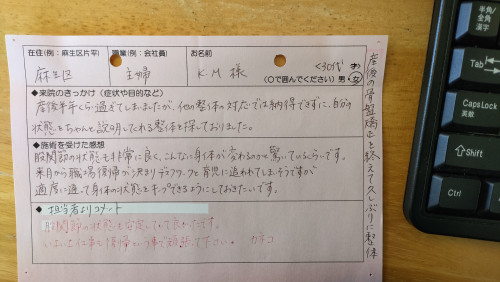 在住(例:麻生区片平)
職業(例:会社員)
お名前
麻生区
主婦
K.M 様
<30代
(○で囲んでください)男・女
◆来院のきっかけ(症状や目的など)
産後半年くらい過ぎてしまいましたが、他の整体の対応では納得できずに、自分の
状態をちゃんと説明してくれる整体を探しておりました。
◆施術を受けた感想
股関節の状態も非常に良く、こんなに身体が変わるのかと驚いているくらいです。
来月から職場復帰が決まりデスクワークと育児に追われてしまいそうですが
適度に通って身体の状態をキープできるようにしておきたいです。
◆担当者よりコメント
股関節の状態も安定していて良かったです。
いよいよ仕事も復帰という事で頑張って下さい。
カネコ
産後の骨盤矯正を終えて久しぶりに整体
半角/
全角
漢字
Tab
CapsLock
英数
Shift
Ctrl